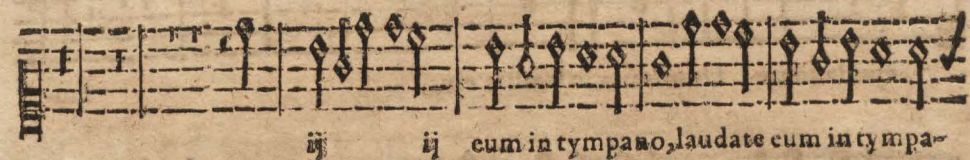 ij ij cum in tympano, laudate cum in tympa-